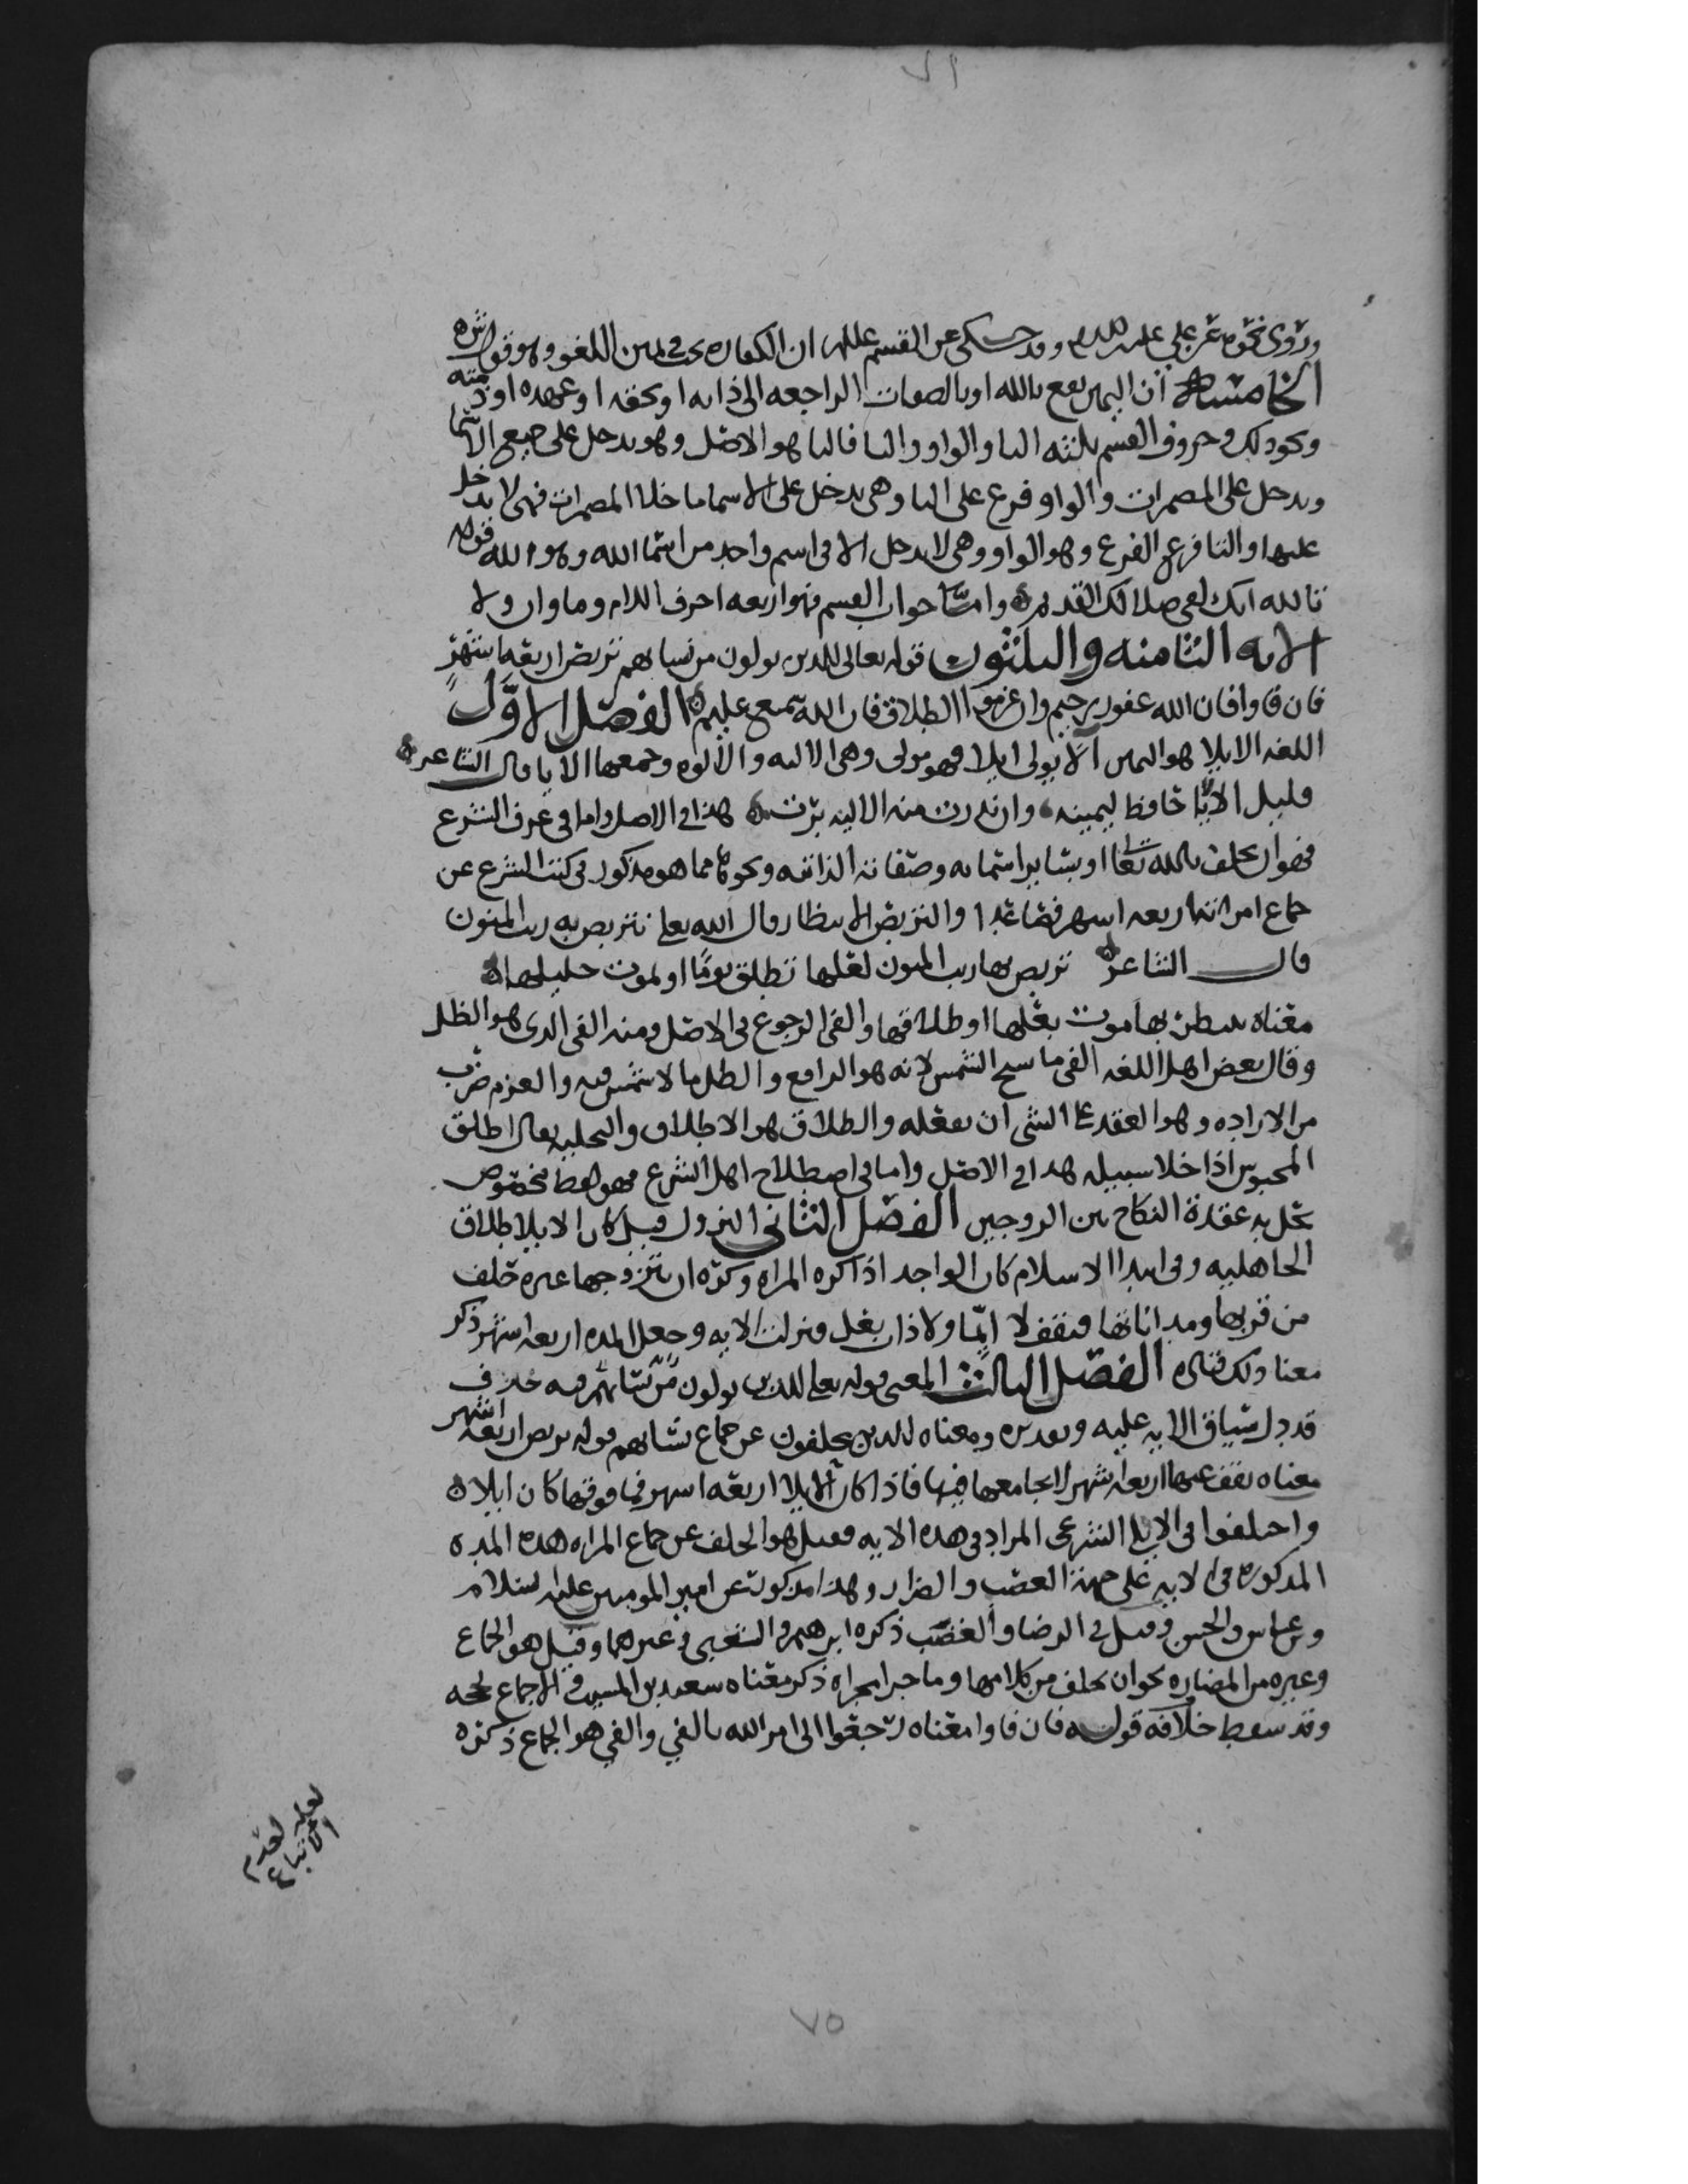 ٧١
وروى نحوه عن علي عليه السلم وقد حكى عن القسم عللم ان الكفاره تجب في يمين اللغو وهو قول
الخامسه ان اليمين يقع بالله او بالصفات الراجعه الى ذاته او بحقه او عهده او ذمته
ونحو ذلك وحروف القسم ثلثه البا والواو والتا فالبا هو الاصل وهو يدخل على جميع الاسما
ويدخل على المضمرات والواو فرع على البا وهي يدخل على الاسما ما خلا المضمرات فهي لا يدخل
عليها والتا فرع الفرع وهو الواو وهي لا يدخل الا في اسم واحد من اسما الله وهو الله قوله
تالله انك لفي ضلالك القديم وامتا جواب القسم فهو اربعه احرف اللام وما وان ولا
الايه الثامنه والثلثون قوله تعالى للذين يولون من نسايهم تربص اربعه اشهر
فان فاوا فان الله غفور رحيم وان عزموا الطلاق فان الله سميع عليم الفصل الاول
اللغه الايلا هو اليمين آلا يولي ايلا فهو مولى وهي الاليه والألوه وجمعها الايا قال الشاعر
قليل الألايا حافظ ليمينه وان ندرت منه الاليه برت هذا في الاصل واما في عرف الشرع
فهو ان يحلف بالله تعالى او بساير اسمايه وصفاته الذاتيه ونحوها مما هو مذكور في كتب الشرع عن
جماع امراته اربعه اشهر فصاعدا والتربص الانتظار قال الله تعلى نتربص به ريب المنون
قال الشاعر تربص بها ريب المنون لعلها تطلق يوما او يموت حليلها
معناه ينتظر بها موت بعلها او طلاقها والفي الرجوع في الاصل ومنه الفي الذي هو الظل
وقال بعض اهل اللغه الفي ما نسخ الشمس لانه هو الراجع والظل ما لا شمس فيه والعزم ضرب
من الاراده وهو العقد على الشي ان يفعله والطلاق هو الاطلاق والتخليه يقال اطلق
المحبوس اذا خلا سبيله هذا في الاصل واما في اصطلاح اهل الشرع فهو لفظ مخصوص
يحل به عقدة النكاح بين الزوجين الفصل الثاني النزول قيل كان الايلا طلاق
الجاهليه وفي ابتدا الاسلام كان الواحد اذا كره المراه وكره ان يتزوجها غيره حلف
من قربها ومداناتها فتقف لا ايما ولا ذات بعل فنزلت الايه وجعل المده اربعه اشهر ذكر
معنا ذلك قتاده الفصل الثالث المعنى قوله تعلى للذين يولون من نسايهم فيه حذف
قد دل سياق الايه عليه وتقديره ومعناه للذين يحلفون عن جماع نسايهم قوله تربص اربعه اشهر
معناه تقف عنها اربعه اشهر لا يجامعها فيها فاذا كان الايلا اربعه اشهر فما فوقها كان ايلاه
واختلفوا في الايلا الشرعي المراد في هذه الايه فقيل هو الحلف عن جماع المراه هذه المده
المذكوره في الايه على جهة الغضب والضرار وهذا مذكور عن امير المومنين عليه السلام
وبن عباس والحسن وقيل في الرضا والغضب ذكره ابرهيم والشعبي وغيرهما وقيل هو الجماع
وغيره من المضاره نحو ان يحلف من كلامها وما جرا مجراه ذكر معناه سعيد بن المسيب والاجماع بحجه
وقد سقط خلافه قوله فان فاوا معناه رجعوا الى امر الله بالفي والفي هو الجماع ذكره
لعله لعدم
الاتباع
٧٥